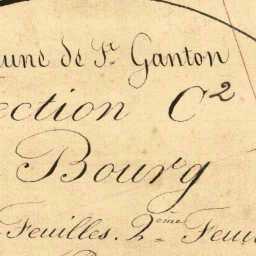 de St. Ganton
ection C2
Bourg
Feuilles. 2eme Feui